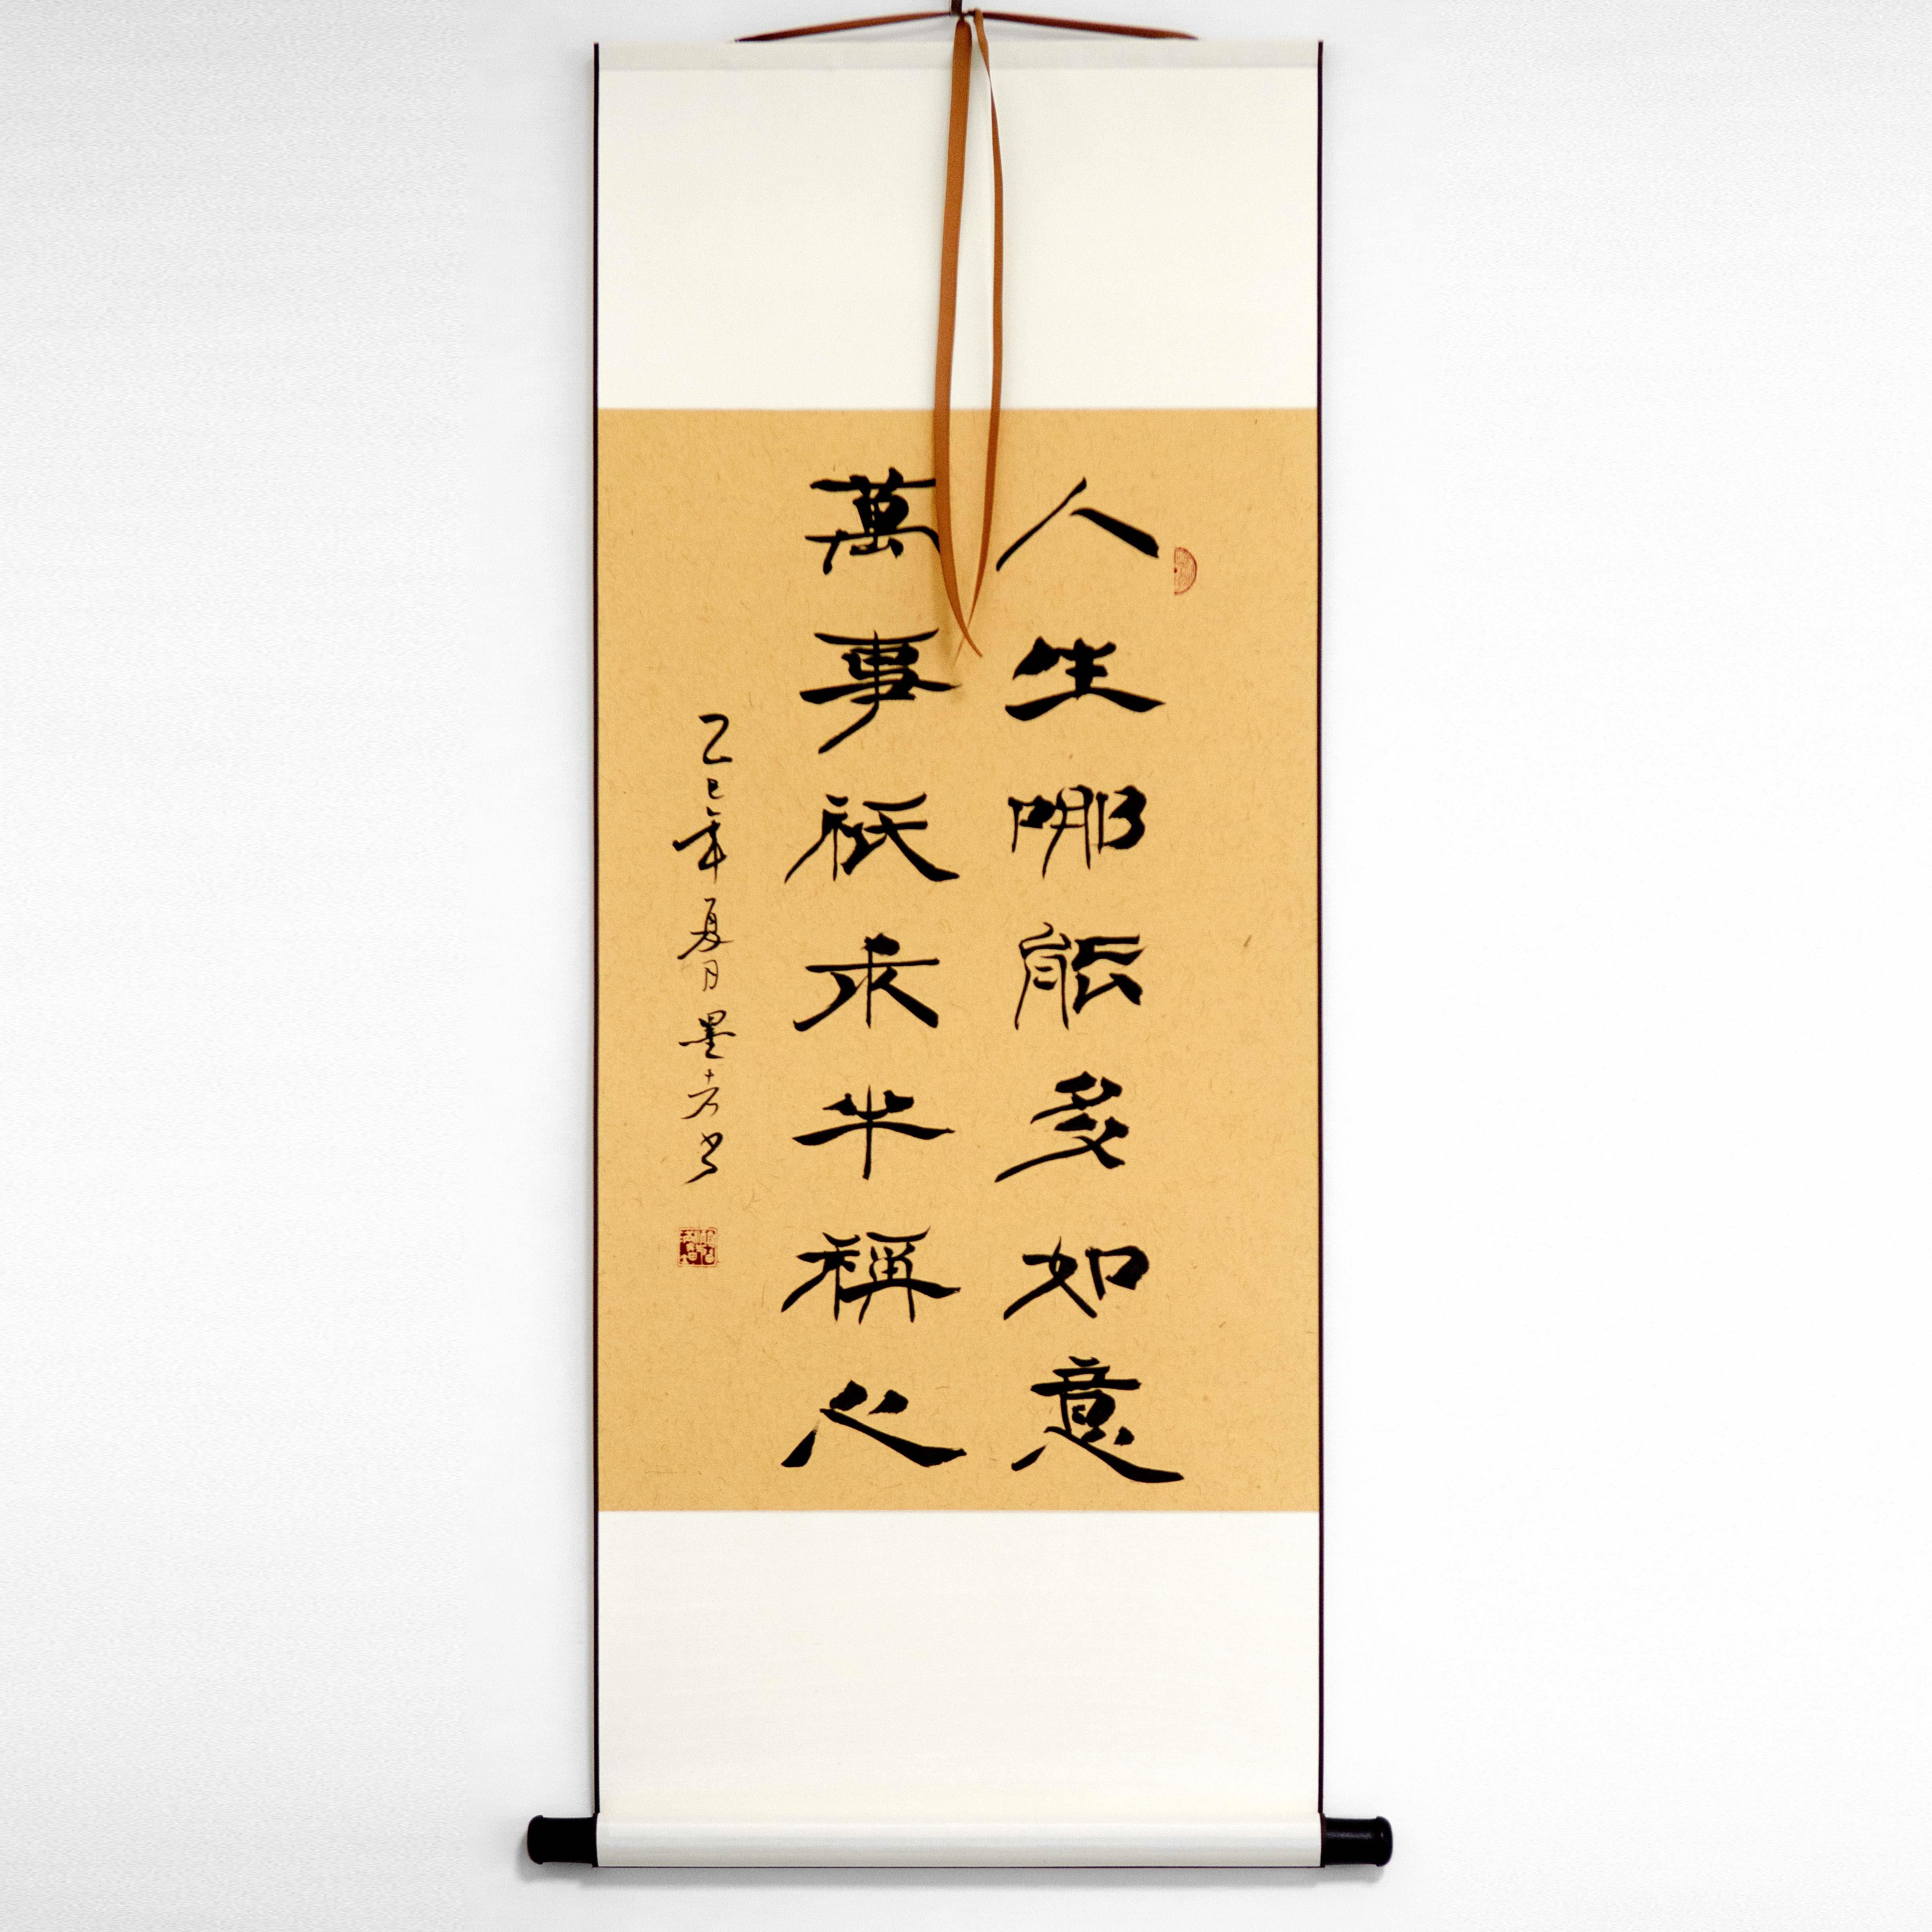 人生哪能多如意
萬事祇求半稱心
乙巳年夏月墨芳书